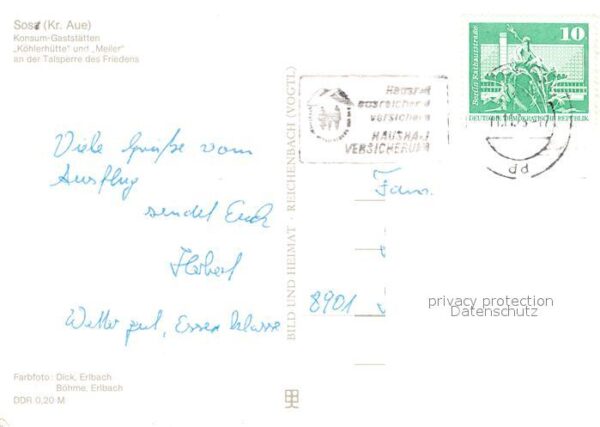 Sosa (Kr. Aue)
Konsum-Gaststätten
„Köhlerhütte" und „Meiler"
an der Talsperre des Friedens
10
Berlin Rathausstraße
DEUTSCHE DEMOKRATISCHE REPUBLIK
Hausrat
ausreichend
versichern
HAUSHALT
VERSICHERUNG
Viele Grüße vom
Ausflug
sendet Euch
Wetter gut, Essen klasse
Fam.
8901
BILD UND HEIMAT · REICHENBACH (VOGTL)
privacy protection
Datenschutz
Farbfoto: Dick, Erlbach
Böhme, Erlbach
DDR 0,20 M